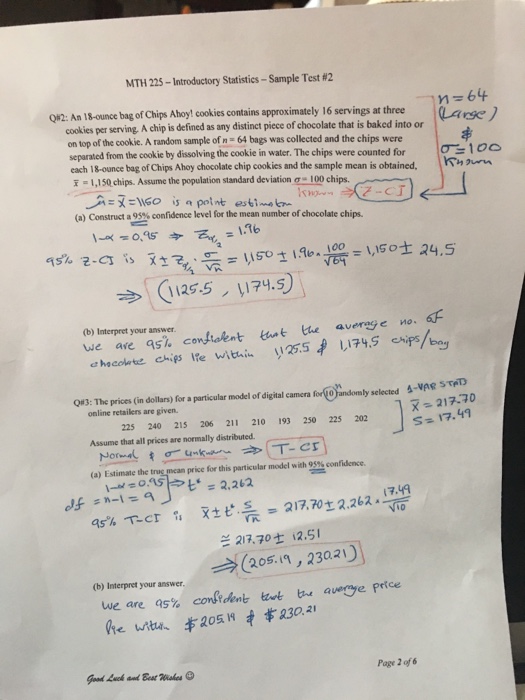 MTH 225 – Introductory Statistics – Sample Test #2
n=64
(Large)
&
σ=100
Known
Q#2: An 18-ounce bag of Chips Ahoy! cookies contains approximately 16 servings at three
cookies per serving. A chip is defined as any distinct piece of chocolate that is baked into or
on top of the cookie. A random sample of n = 64 bags was collected and the chips were
separated from the cookie by dissolving the cookie in water. The chips were counted for
each 18-ounce bag of Chips Ahoy chocolate chip cookies and the sample mean is obtained,
x̄ = 1,150 chips. Assume the population standard deviation σ = 100 chips.
Known ⇒ Z-CI
μ̂ = x̄ = 1160 is a point estimator
(a) Construct a 95% confidence level for the mean number of chocolate chips.
1-α = 0.95 ⇒ Zα/2 = 1.96
95% Z-CI is x̄ ± Zα/2 · σ/√n = 1,150 ± 1.96 · 100/√64 = 1,150 ± 24.5
⇒ (1125.5 , 1,174.5)
(b) Interpret your answer.
We are 95% confident that the average no. of
chocolate chips lie within 1,125.5 & 1,174.5 chips/bag
Q#3: The prices (in dollars) for a particular model of digital camera for 10 randomly selected
online retailers are given.
n
1-VAR STAT
x̄ = 217.70
S = 17.49
225 240 215 206 211 210 193 250 225 202
Assume that all prices are normally distributed.
Normal & σ unknown ⇒ T-CI
(a) Estimate the true mean price for this particular model with 95% confidence.
1-α = 0.95 ⇒ t* = 2.262
df = n-1 = 9
95% T-CI is x̄ ± t* · S/√n = 217.70 ± 2.262 · 17.49/√10
≅ 217.70 ± 12.51
⇒ (205.19 , 230.21)
(b) Interpret your answer.
We are 95% confident that the average price
lie within $205.19 & $230.21
Page 2 of 6
Good Luck and Best Wishes ☺